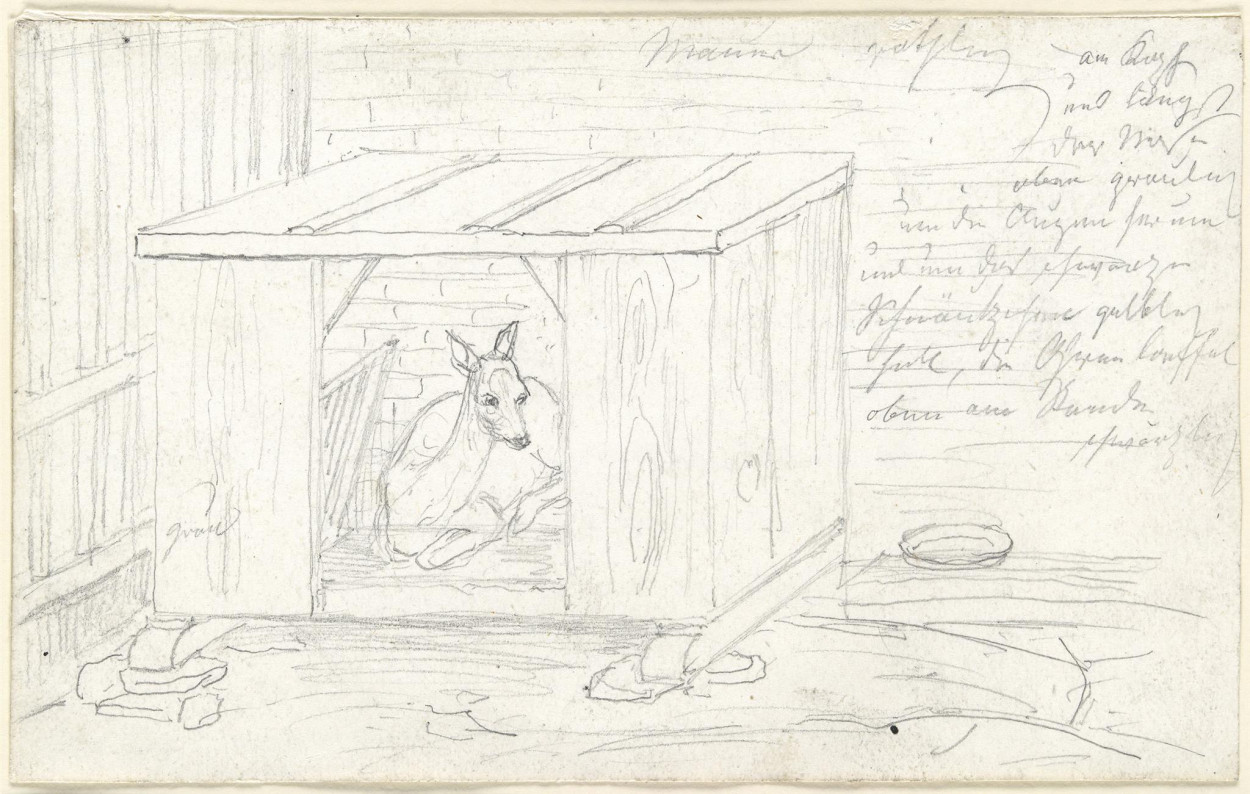 Mauer röthlich
am Kopf
und längst
der Nase
oben graulich
um die Augen herum
und um das schwarze
Schnäutzchen gelblich
hell, die Ohren
oben am Rande
schwärzlich
grau